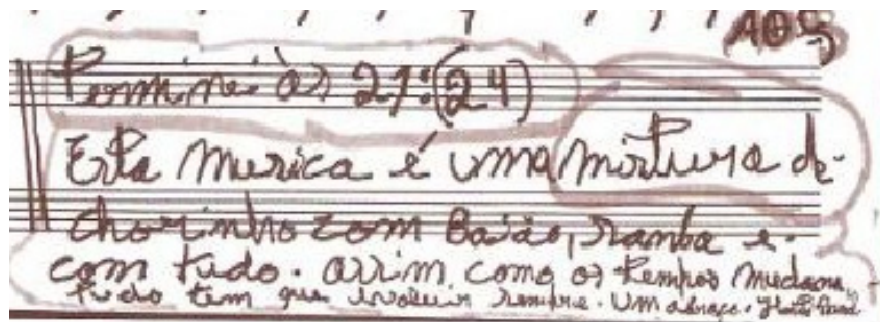 Terminei às 21:(24)
Esta musica é uma mistura de
chorinho com Baião, samba e
com tudo. assim como os tempos mudam,
tudo tem que evoluir sempre. Um abraço.